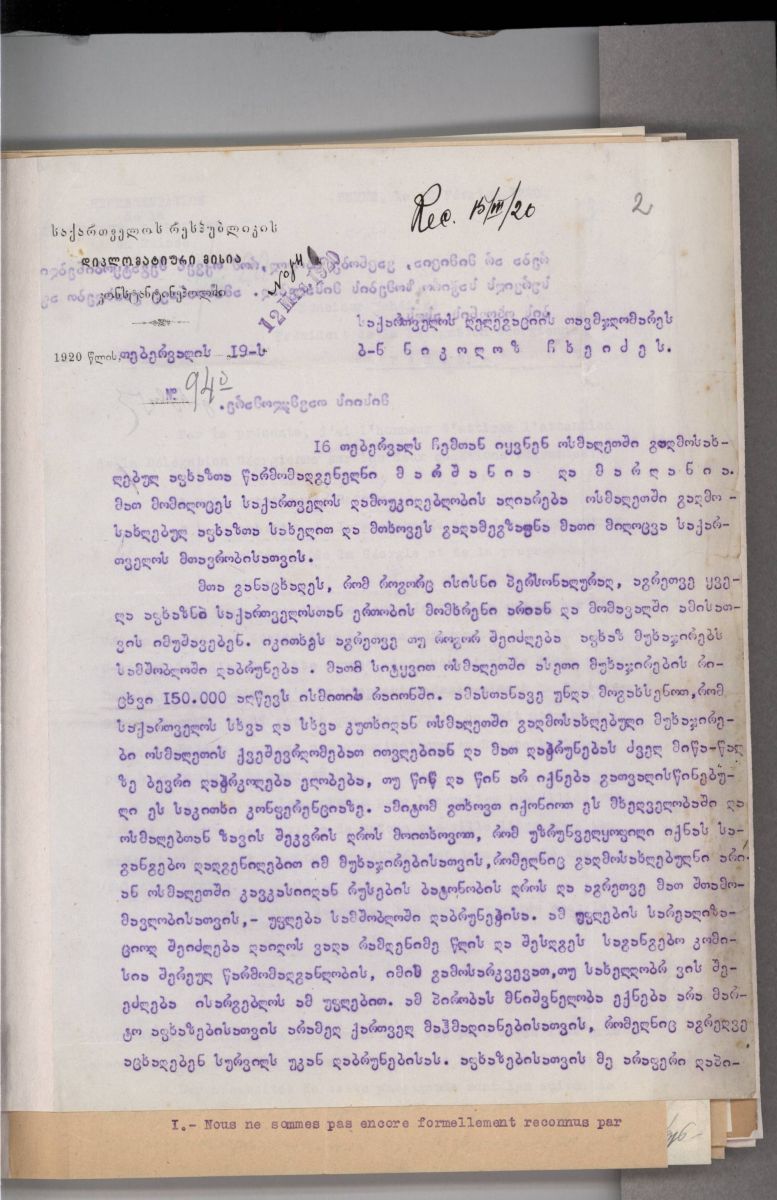 Rec. 15/III/20
2
საქართველოს რესპუბლიკის
დიპლომატიური მისია
კონსტანტინეპოლში
1920 წლის, თებერვალის 19-ს
№ 94
საქართველოს დელეგაციის თავმჯდომარეს
ბ-ნ ნიკოლოზ ჩხეიძეს.
16 თებერვალს ჩემთან იყვნენ ოსმალეთში გადმოსახ-
ლებულ აფხაზთა წარმომადგენელნი მარშანია და მარღანია.
მათ მომილოცეს საქართველოს დამოუკიდებლობის აღიარება ოსმალეთში გადმო-
სახლებულ აფხაზთა სახელით და მთხოვეს გადამეგზავნა მათი მილოცვა საქარ-
თველოს მთავრობისათვის.
მთა განაცხადეს, რომ როგორც ისისნი პერსონალურად, აგრეთვე ყვე-
ლა აფხაზნი საქართველოსთან ერთობის მომხრენი არიან და მომავალში ამისათ-
ვის იმუშავებენ. იკითხეს აგრეთვე თუ როგორ შეიძლება აფხაზ მუჰაჯირებს
სამშობლოში დაბრუნება. მათი სიტყვით ოსმალეთში ასეთი მუჰაჯირების რი-
ცხვი 150.000 აღწევს ისმითის რაიონში. ამასთანავე უნდა მოგახსენოთ, რომ
საქართველოს სხვა და სხვა კუთხიდან ოსმალეთში გადმოსახლებული მუჰაჯირე-
ბი ოსმალეთის ქვეშევრდომებათ ითვლებიან და მათ დაბრუნებას ძველ მიწა-წყალ
ზე ბევრი დაბრკოლება ელობება, თუ წინ და წინ არ იქნება გათვალისწინებუ-
ლი ეს საკითხი კონფერენციაზე. ამიტომ გთხოვთ იქონიოთ ეს მხედველობაში და
ოსმალებთან ზავის შეკვრის დროს მოითხოვოთ, რომ უზრუნველყოფილი იქნას სა-
განგებო დადგენილებით იმ მუჰაჯირებისათვის, რომელნიც გადმოსახლებულნი არი-
ან ოსმალეთში კავკასიიდან რუსების ბატონობის დროს და აგრეთვე მათ შთამო-
მავლობისათვის,- უფლება სამშობლოში დაბრუნებისა. ამ უფლების სარეალიზა-
ციოდ შეიძლება დაიდოს ვადა რამდენიმე წლის და შესდგეს საგანგებო კომი-
სია შერეულ წარმომადგენლობის, იმის გამოსარკვევათ, თუ სახელდობრ ვის შე-
ეძლება ისარგებლოს ამ უფლებით. ამ პირობას მნიშვნელობა ექნება არა მარ-
ტო აფხაზებისათვის არამედ ქართველ მაჰმადიანებისათვის, რომელნიც აგრედვე
აცხადებენ სურვილს უკან დაბრუნებისას. აფხაზებისათვის მე არაფერი დაპი-
I.- Nous ne sommes pas encore formellement reconnus par